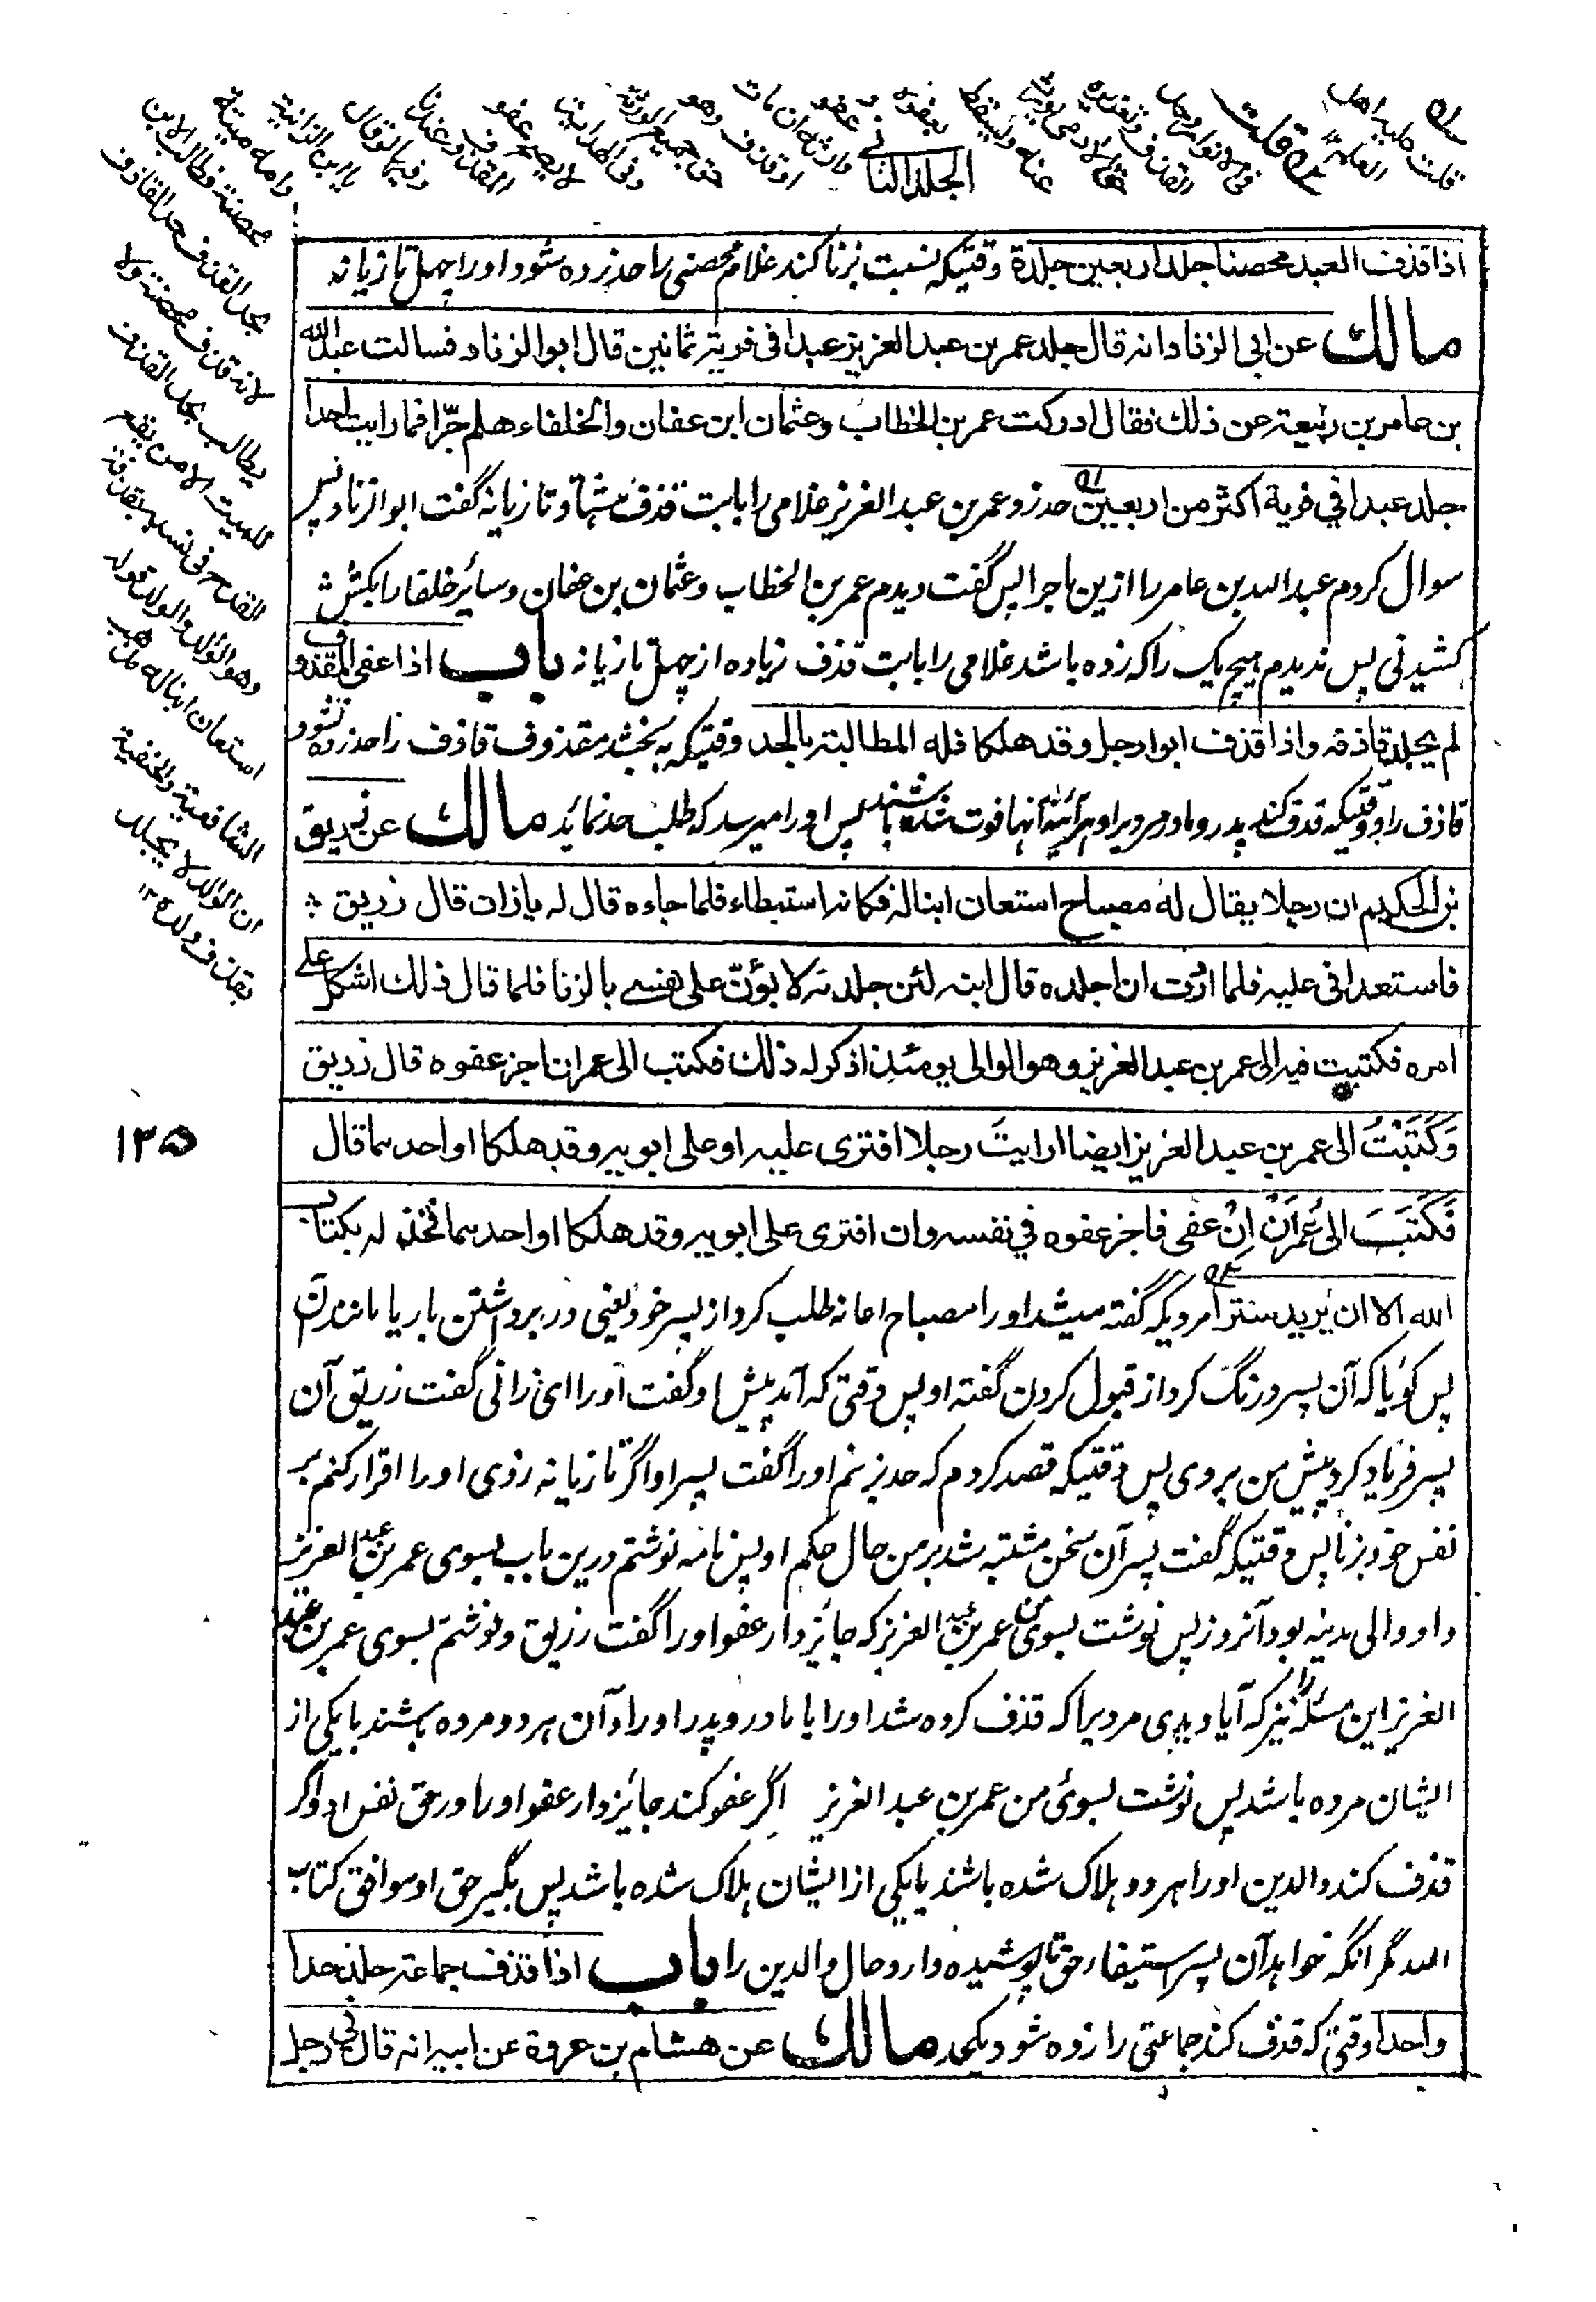 الجلد الثاني
اذا قذف العبد محصنا جلد اربعين جلدة وقتیکه نسبت بزنا کند غلام محصنی را حد زده شود او را چهل تازیانه
مالك عن ابى الزناد انه قال جلد عمر بن عبد العزيز عبدا فى فرية ثمانين قال ابو الزناد فسالت عبد الله
بن عامر بن ربيعة عن ذلك فقال ادركت عمر بن الخطاب وعثمان ابن عفان والخلفاء هلم جرّا فما رايت احدا
جلد عبدا في فرية اكثر من اربعين حد زد عمر بن عبد العزیز غلامی را بابت قذف هشتاد تازیانه گفت ابو الزناد پس
سوال کردم عبد الله بن عامر را ازین ماجرا پس گفت دیدم عمر بن الخطاب و عثمان بن عفان و سائر خلفا را بکشش
کشیدنی پس ندیدم هیچ یک را که زده باشد غلامی را بابت قذف زیاده از چهل تازیانه باب اذا عفى المقذوف
لم يجلد قاذفه واذا قذف ابوا رجل وقد هلكا فله المطالبة بالحد وقتیکه به بخشد مقذوف قاذف را حد زده نشود
قاذف را و وقتیکه قذف کند پدر و مادر مردیرا و هرآئینه آنها فوت شده باشند پس او را میرسد که طلب حد نماید مالك عن زريق
بن الحكيم ان رجلا يقال له مصباح استعان ابنا له فكانه استبطاه فلما جاءه قال له يا زان قال زريق
فاستعدانى عليه فلما اردت ان اجلده قال ابنه لئن جلدته لابوئنّ على نفسى بالزنا فلما قال ذلك اشكل على
امره فكتبت فيه الى عمر بن عبد العزيز وهو الوالى يومئذ اذكر له ذلك فكتب الى عمر ان اجز عفوه قال زريق
وَكَتَبْتُ الى عمر بن عبد العزيز ايضا ارايتَ رجلا افترى عليه او على ابويه وقد هلكا او احدهما قال
فَكَتَبَ الىّ عُمَرُ اِنْ عفى فاجز عفوه في نفسه وان افترى على ابويه وقد هلكا او احدهما فخذ له بكتاب
الله الا ان يريد سترا مردیکه گفته میشد او را مصباح اعانه طلب کرد از پسر خود یعنی در برداشتن بار یا مانند آن
پس گویا که آن پسر درنگ کرد از قبول کردن گفته او پس وقتی که آمد پیش او گفت او را ای زانی گفت زریق آن
پسر فریاد کرد پیش من بر وی پس وقتیکه قصد کردم که حد بزنم او را گفت پسر او اگر تازیانه زدی او را اقرار کنم بر
نفس خود بزنا پس وقتیکه گفت پسر آن سخن مشتبه شد بر من حال حکم او پس نامه نوشتم درین باب بسوی عمر بن عبد العزیز
و او والی مدینه بود آنروز پس نوشت بسوی من عمر بن عبد العزیز که جائز دار عفو او را گفت زریق و نوشتم بسوی عمر بن عبد
العزیز این مسئله را نیز که آیا دیدی مردیرا که قذف کرده شد او را یا مادر و پدر او را و آن هر دو مرده باشند یا یکی از
ایشان مرده باشد پس نوشت بسوئ من عمر بن عبد العزیز اگر عفو کند جائز دار عفو او را در حق نفس او و اگر
قذف کند والدین او را هر دو هلاک شده باشند یا یکی از ایشان هلاک شده باشد پس بگیر حق او موافق کتاب
الله مگر آنگه خواهد آن پسر استیفاء حق تا پوشیده دارد حال والدین را باب اذا قذف جماعة جلد حدا
واحدا وقتی که قذف کند جماعتی را زده شود یکحد مالك عن هشام بن عروة عن ابيه انه قال فى رجل
محصنة فطالب الابن
بحد القذف حد القاذف
لانه قذف محصنة ولا
يطالب بحد القذف
للميت الا من يقع
القدح فى نسبه بقذفه
وهو الولد والوالد قوله
استعان ابنا له مذهب
الشافعية والحنفية
ان الوالد لا يجلد
بقذف ولده ١٢
١٣٥